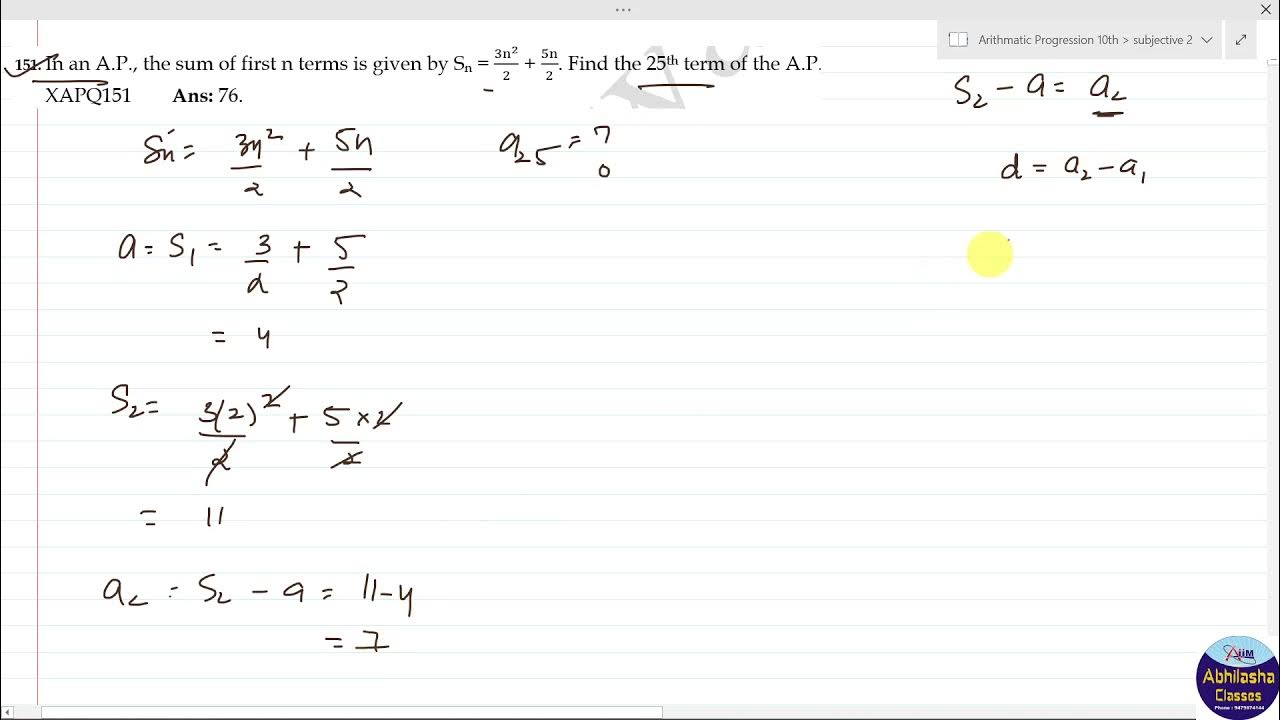 Arithmatic Progression 10th > subjective 2
151. In an A.P., the sum of first n terms is given by Sₙ = 3n²/2 + 5n/2. Find the 25th term of the A.P.
XAPQ151 Ans: 76.
Sn = 3n²/2 + 5n/2
a = S₁ = 3/2 + 5/2
= 4
S₂ = 3(2)²/2 + 5×2/2
= 11
a₂ = S₂ - a = 11-4
= 7
a₂₅ = ?
S₂ - a = a₂
d = a₂ - a₁
AiiM
Abhilasha
Classes
Phone : 9479874144